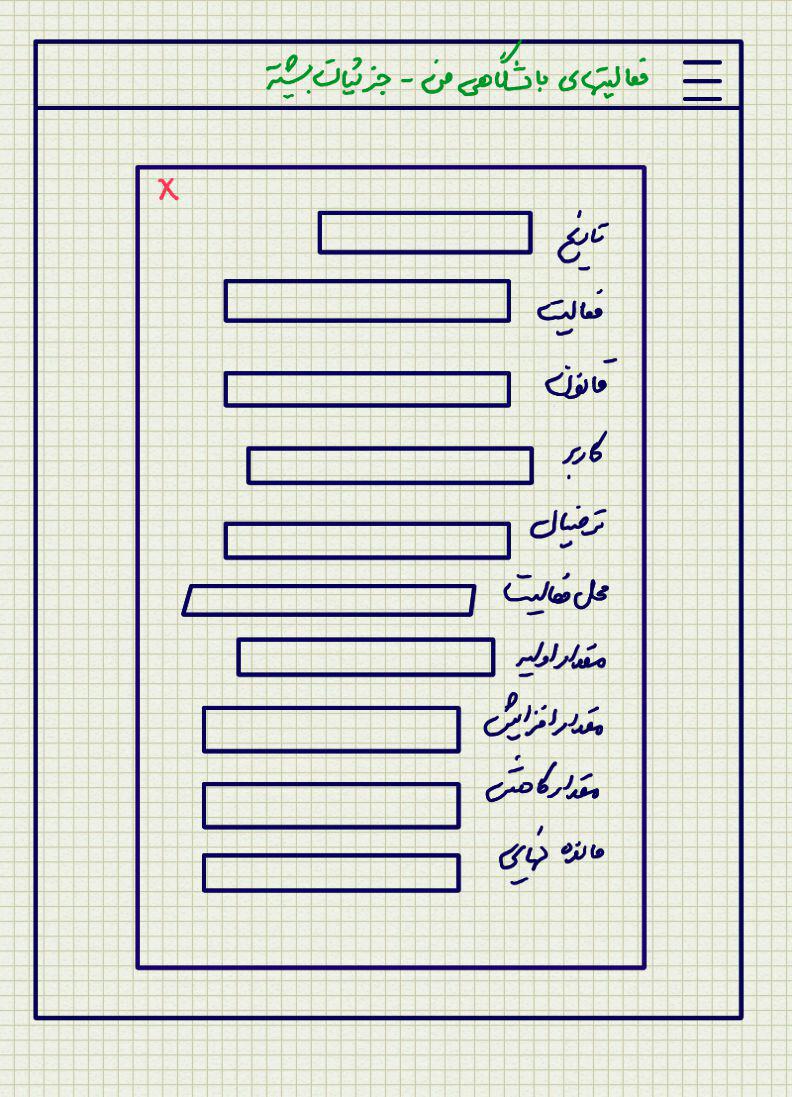 فعالیتهای باشگاهی من - جزئیات بیشتر
X
تاریخ
فعالیت
قانون
کاربر
ترمینال
محل فعالیت
مقدار اولیه
مقدار افزایش
مقدار کاهش
مانده نهایی